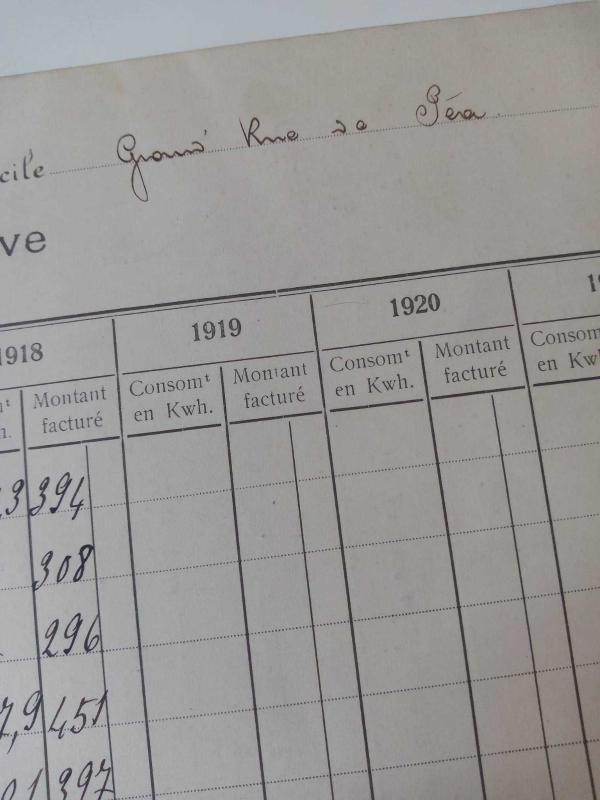 cile Grand' Rue de Péra
ve
1918 1919 1920 19
Montant facturé Consomᵗ en Kwh. Montant facturé Consomᵗ en Kwh. Montant facturé Consomᵗ en Kwh.
,3 394
308
296
7,9 451
01 397